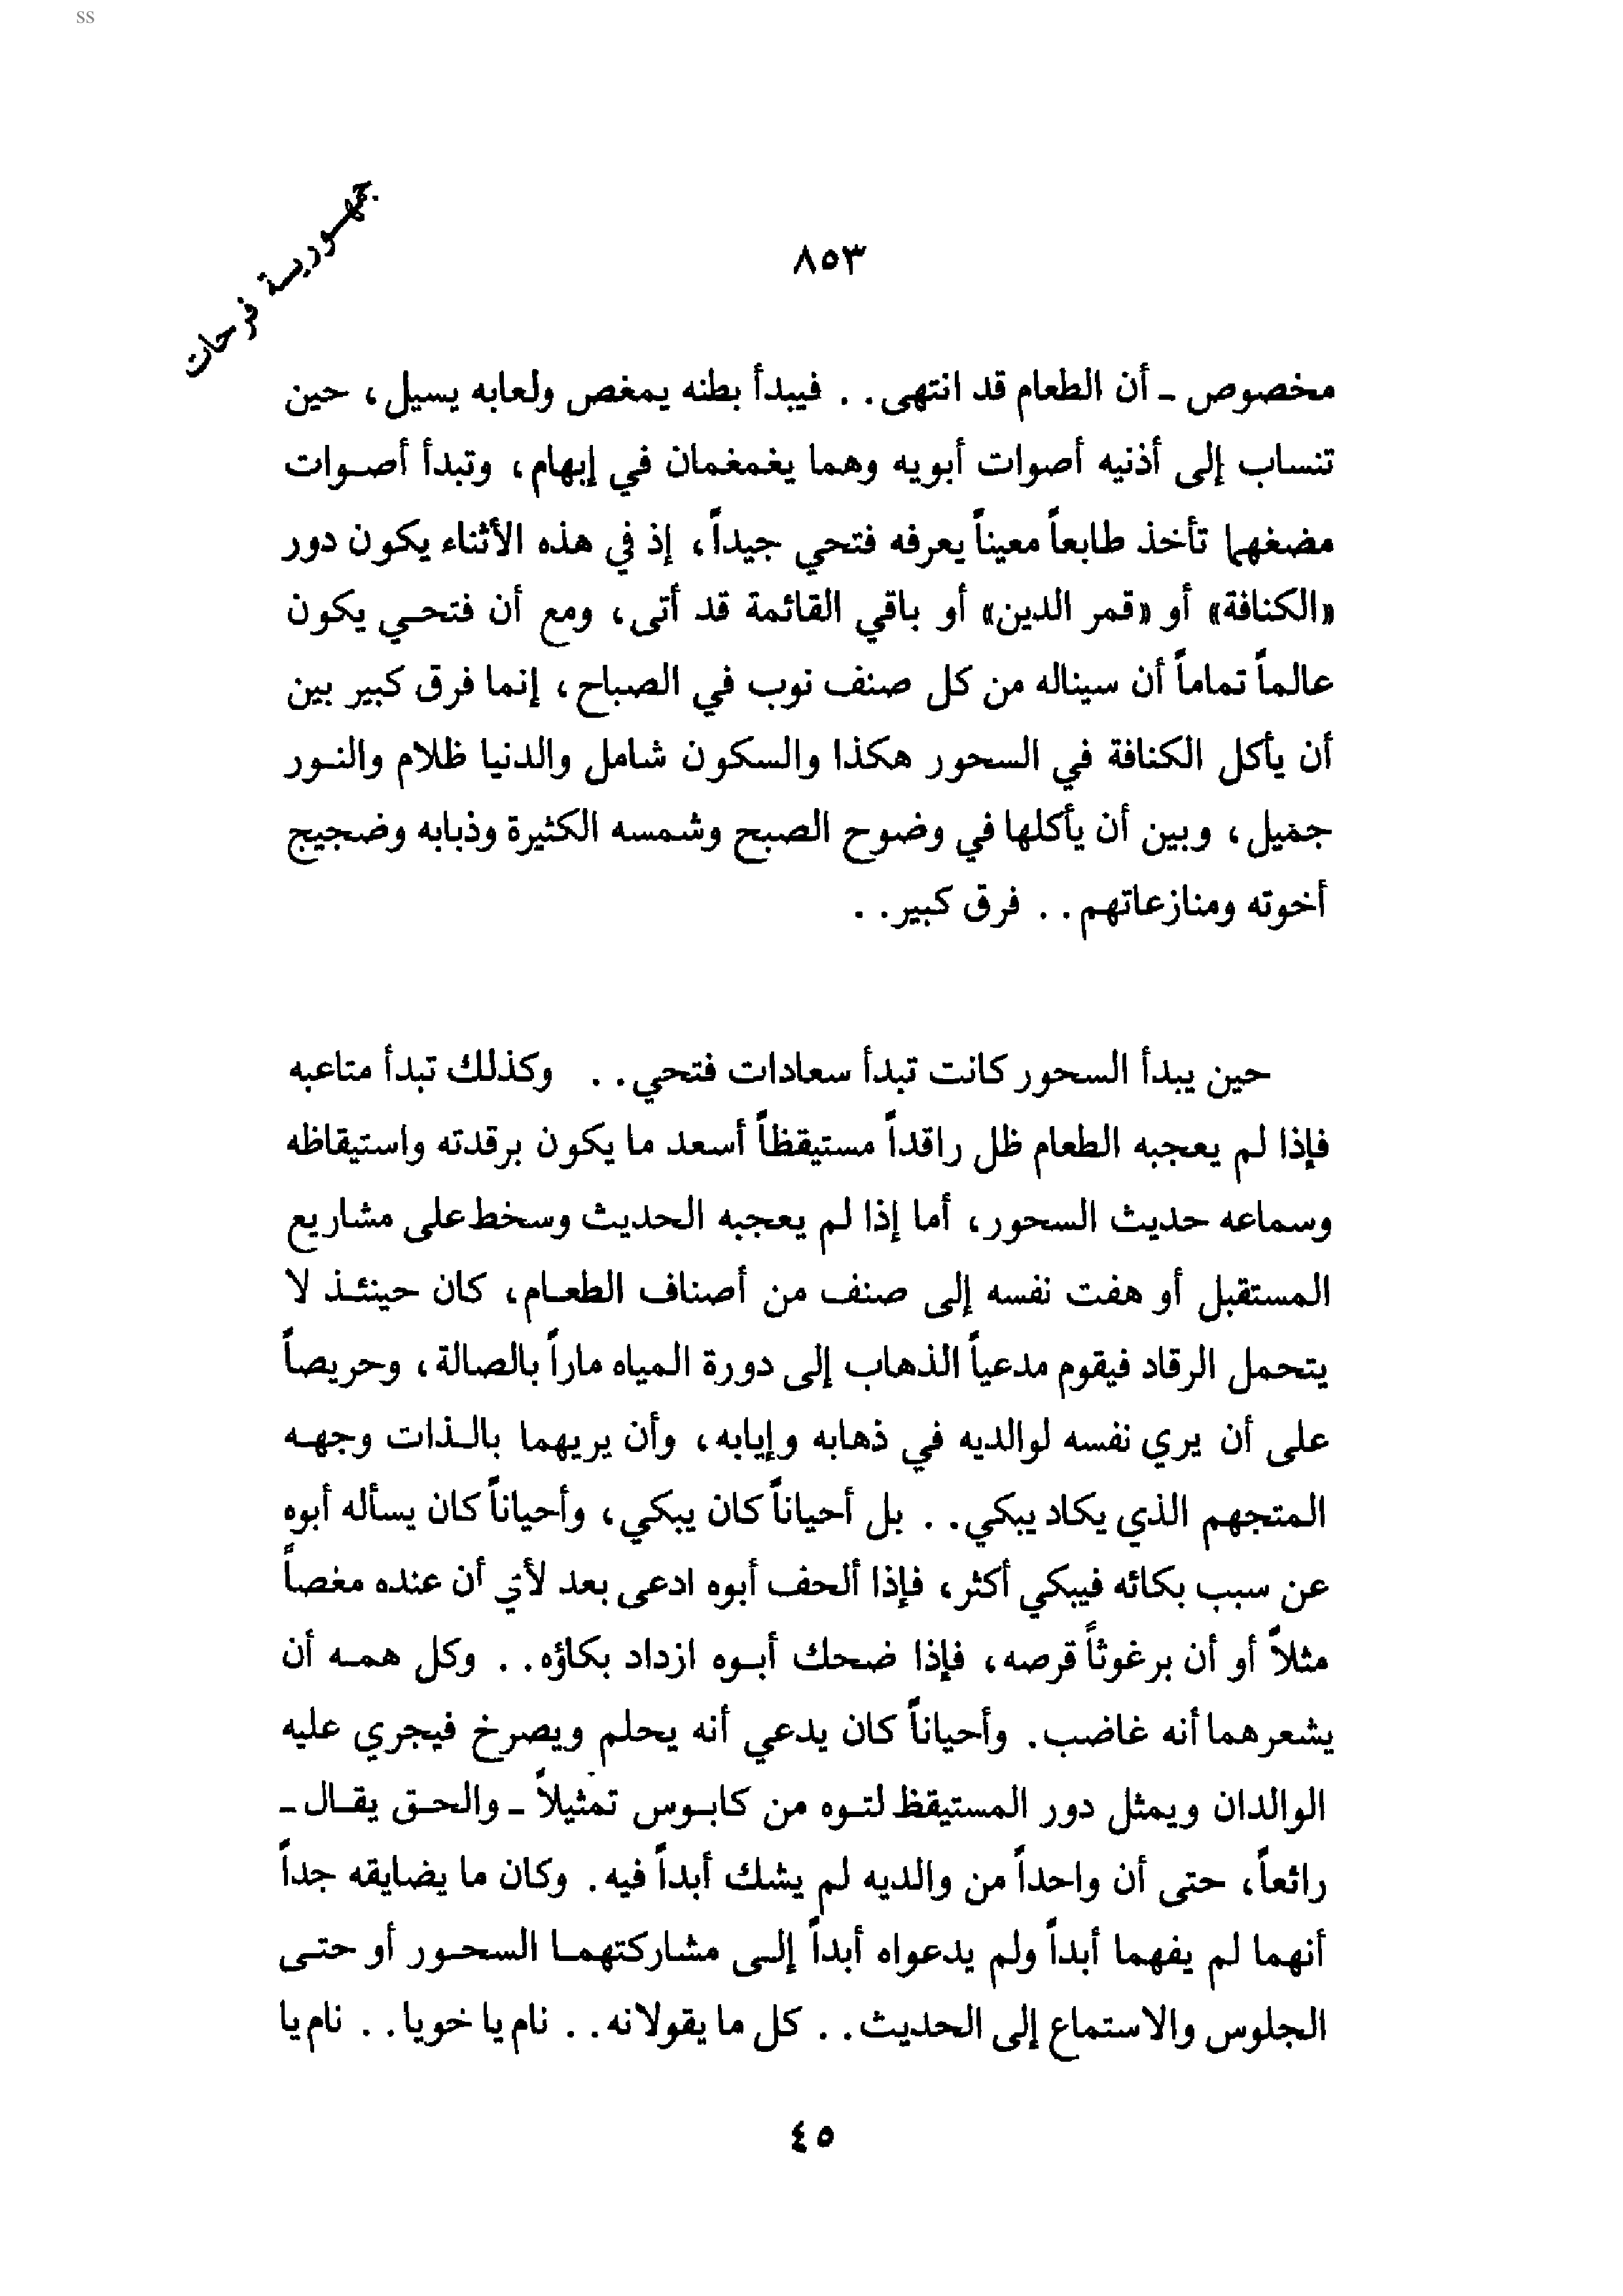 SS
جمهورية فرحات
٨٥٣
مخصوص - أن الطعام قد انتهى . . فيبدأ بطنه يمغص ولعابه يسيل ، حين
تنساب إلى أذنيه أصوات أبويه وهما يغمغمان في إبهام ، وتبدأ أصوات
مضغهما تأخذ طابعاً معيناً يعرفه فتحي جيداً ، إذ في هذه الأثناء يكون دور
«الكنافة» أو «قمر الدين» أو باقي القائمة قد أتى ، ومع أن فتحي يكون
عالماً تماماً أن سيناله من كل صنف نوب في الصباح ، إنما فرق كبير بين
أن يأكل الكنافة في السحور هكذا والسكون شامل والدنيا ظلام والنور
جميل ، وبين أن يأكلها في وضوح الصبح وشمسه الكثيرة وذبابه وضجيج
أخوته ومنازعاتهم . . فرق كبير . .
حين يبدأ السحور كانت تبدأ سعادات فتحي . . وكذلك تبدأ متاعبه
فإذا لم يعجبه الطعام ظل راقداً مستيقظاً أسعد ما يكون برقدته واستيقاظه
وسماعه حديث السحور ، أما إذا لم يعجبه الحديث وسخط على مشاريع
المستقبل أو هفت نفسه إلى صنف من أصناف الطعام ، كان حينئذ لا
يتحمل الرقاد فيقوم مدعياً الذهاب إلى دورة المياه ماراً بالصالة ، وحريصاً
على أن يري نفسه لوالديه في ذهابه وإيابه ، وأن يريهما بالذات وجهه
المتجهم الذي يكاد يبكي . . بل أحياناً كان يبكي ، وأحياناً كان يسأله أبوه
عن سبب بكائه فيبكي أكثر ، فإذا ألحف أبوه ادعى بعد لأي أن عنده مغصاً
مثلاً أو أن برغوثاً قرصه ، فإذا ضحك أبوه ازداد بكاؤه . . وكل همه أن
يشعرهما أنه غاضب . وأحياناً كان يدعي أنه يحلم ويصرخ فيجري عليه
الوالدان ويمثل دور المستيقظ لتوه من كابوس تمثيلاً - والحق يقال -
رائعاً ، حتى أن واحداً من والديه لم يشك أبداً فيه . وكان ما يضايقه جداً
أنهما لم يفهما أبداً ولم يدعواه أبداً إلى مشاركتهما السحور أو حتى
الجلوس والاستماع إلى الحديث . . كل ما يقولانه . . نام يا خويا . . نام يا
٤٥